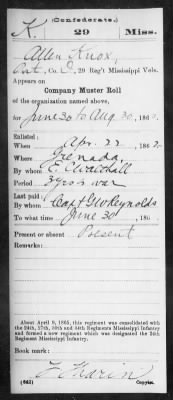 (Confederate.)
K. 29 Miss.
Allen Knox,
Cpt., Co. C, 29 Reg't Mississippi Vols.
Appears on
Company Muster Roll
of the organization named above,
for June 30 to Aug. 30, 186
Enlisted:
When Apr. 22, 1862
Where Grenada,
By whom E. C. Walthall
Period 3 yrs or war
Last paid:
By whom Capt. Reynolds
To what time June 30, 186
Present or absent Present
Remarks:
About April 9, 1865, this regiment was consolidated with
the 24th, 27th, 30th and 34th Regiments Mississippi Infantry
and formed a new regiment which was designated the 24th
Regiment Mississippi Infantry.
Book mark:
(642) Copyist.